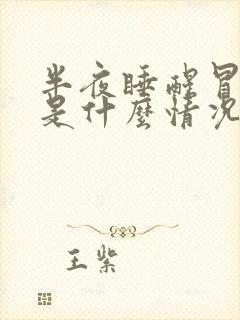 半夜睡醒冒
是什麼情况
王紫